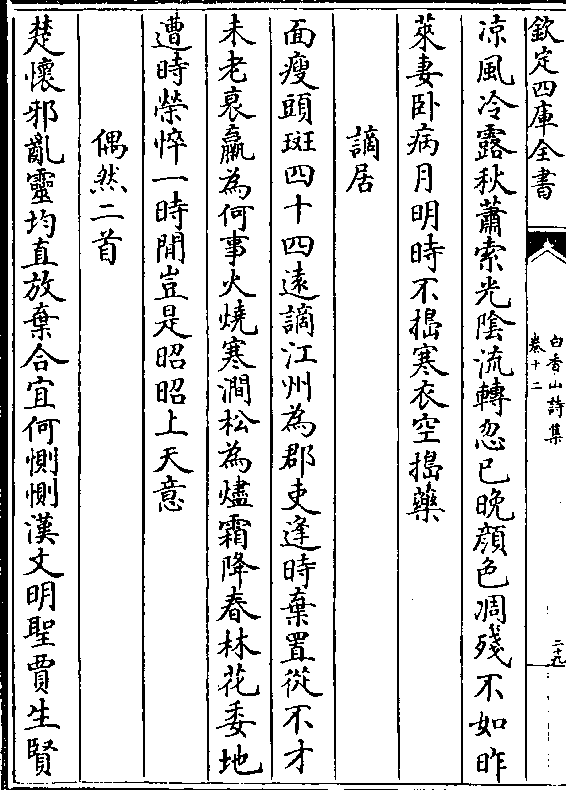 欽定四庫全書
白香山詩集
卷十二
二十九
凉風冷露秋蕭索光陰流轉忽已晚顔色凋殘不如昨
萊妻卧病月明時不搗寒衣空搗藥
謫居
面瘦頭斑四十四遠謫江州為郡吏逢時棄置從不才
未老衰羸為何事火燒寒澗松為燼霜降春林花委地
遭時榮悴一時閒豈是昭昭上天意
偶然二首
楚懷邪亂靈均直放棄合宜何惻惻漢文明聖賈生賢